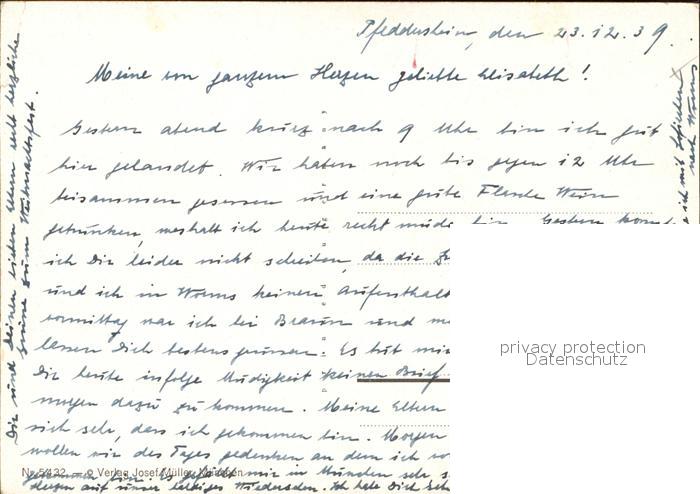 Pfeddersheim, den 23.12.39.
Meine von ganzem Herzen geliebte Elisabeth!
Gestern abend kurz nach 9 Uhr bin ich gut
hier gelandet. Wir haben noch bis gegen 12 Uhr
beisammen gesessen und eine gute Flasche Wein
getrunken, weshalb ich heute recht müde bin. Gestern konnte
ich Dir leider nicht schreiben, da die
und ich in Worms keinen Aufenthalt
vormittag war ich bei Braun und
lassen Dich bestens grüssen. Es tut mir
Dir heute infolge Müdigkeit keinen Brief
morgen dazu zu kommen. Meine Eltern
sich sehr, dass ich gekommen bin. Morgen
wollen wir des Tages gedenken an dem ich
gekommen bin. Es gefällt mir in München sehr
auf unser Wiedersehen. Ich habe Dich
Dir und Deinen lieben Eltern recht herzliche
Grüsse zum Weihnachtsfest.
ich mit
nach Worms
privacy protection
Datenschutz
Nr. 5432 — © Verlag Josef Müller, München